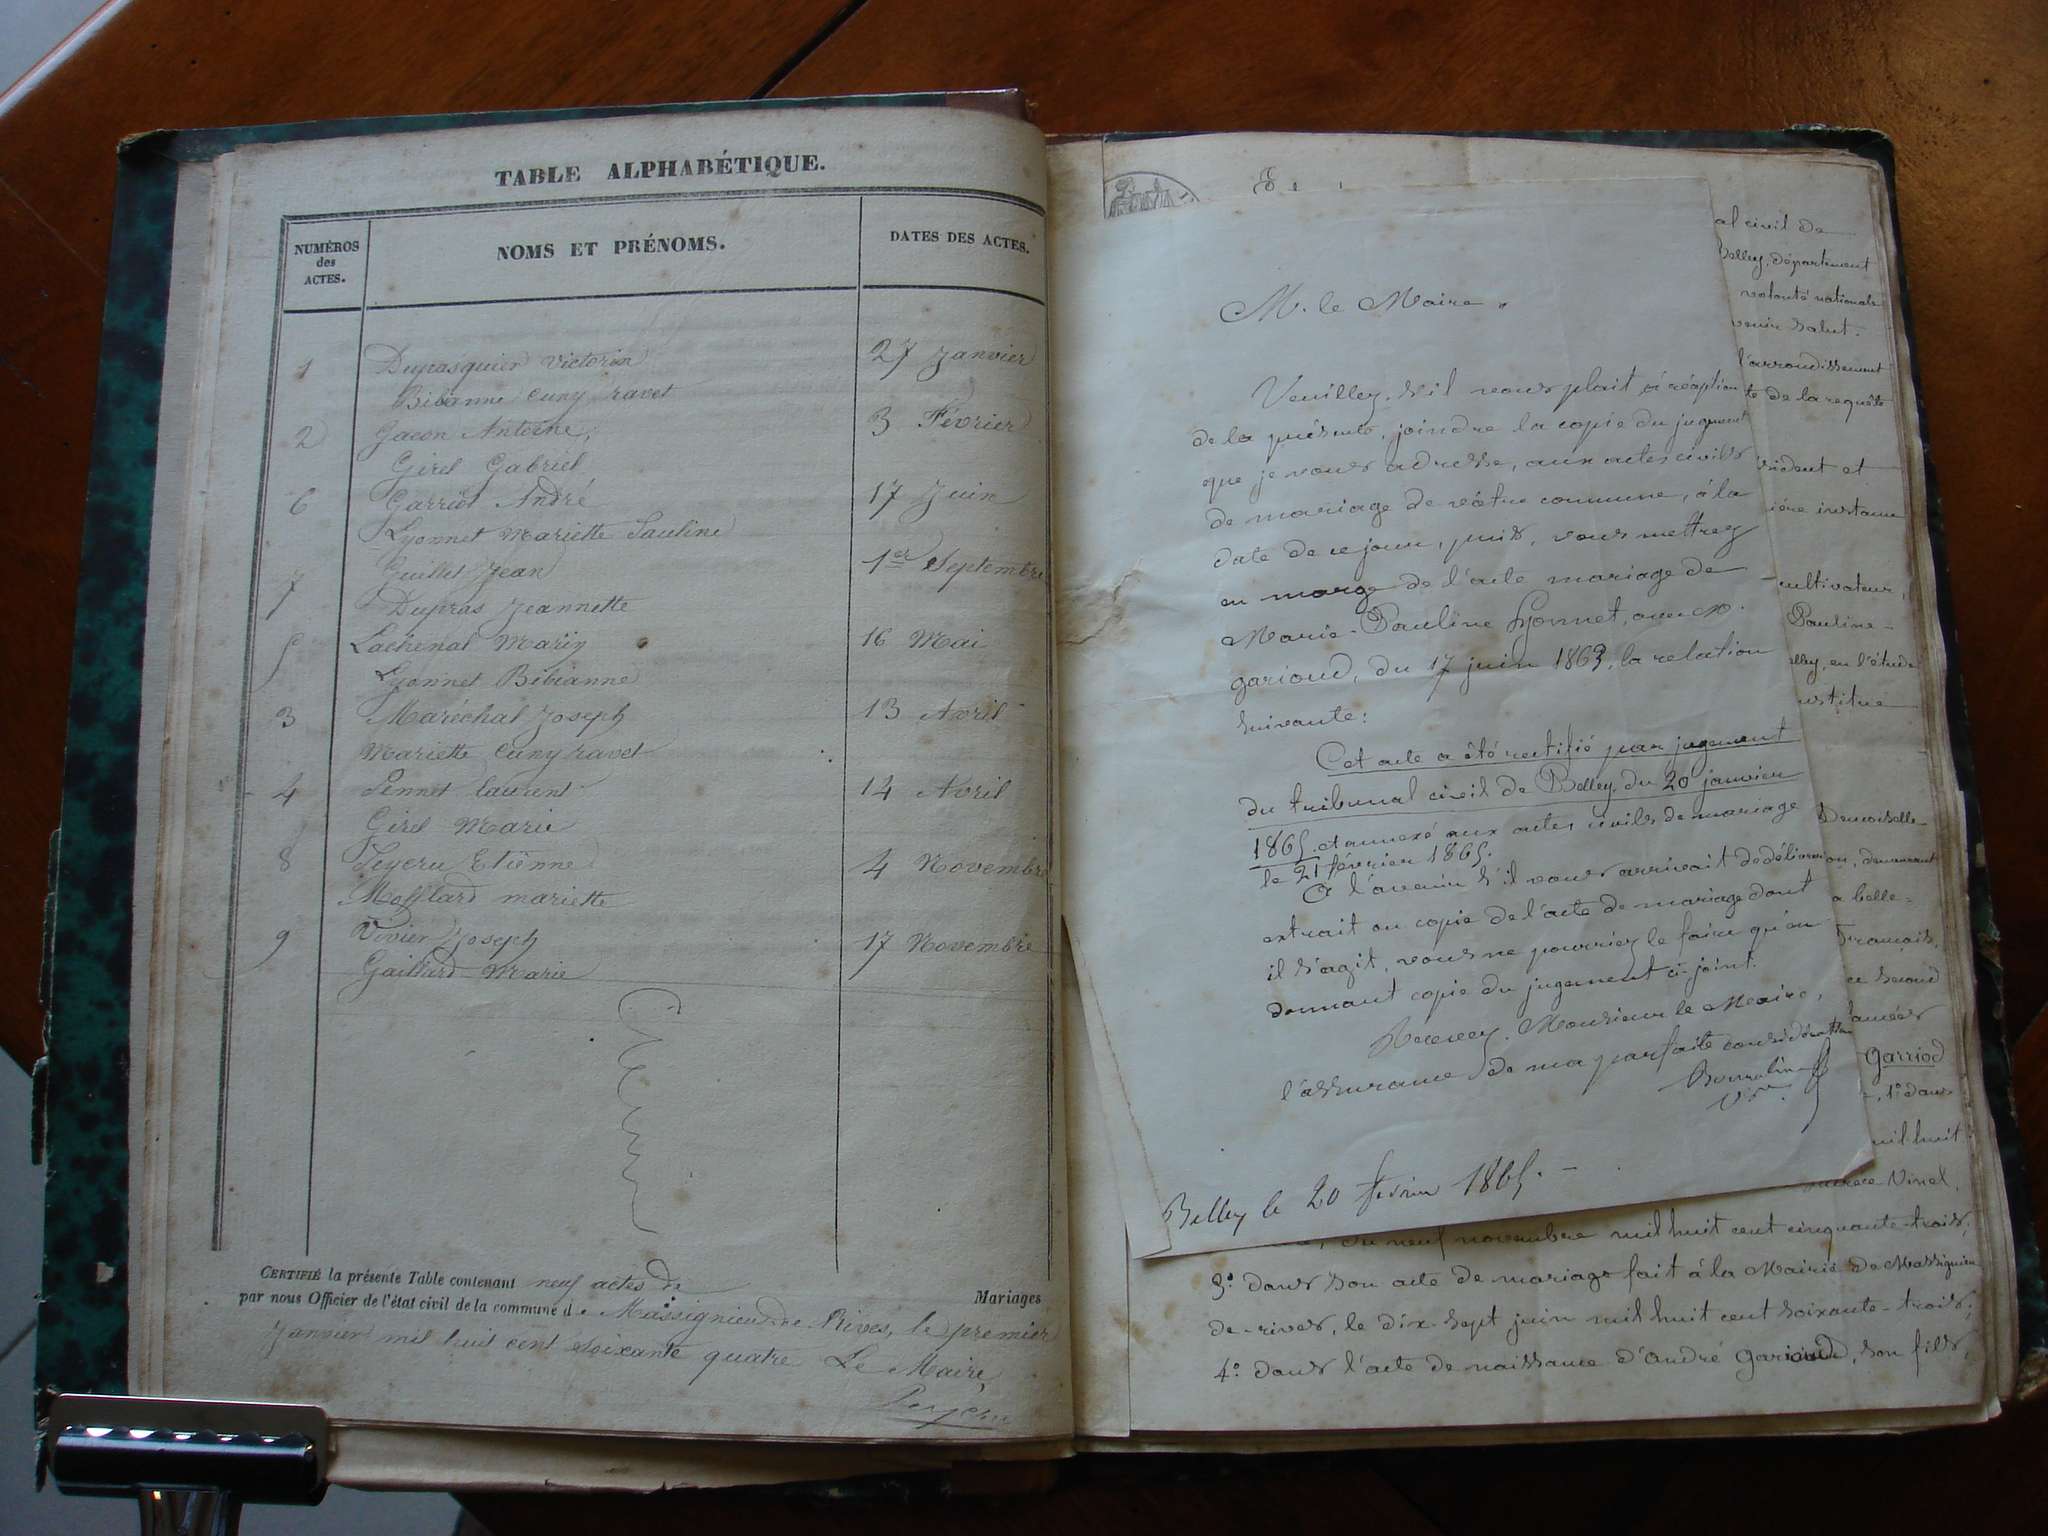 TABLE ALPHABÉTIQUE.
NUMÉROS des ACTES.
NOMS ET PRÉNOMS.
DATES DES ACTES.
1 Dupasquier Victorin 27 Janvier
Bibianne Cuny ravet
2 Jacon Antoine, 3 Février
Girel Gabriel
6 Garriod André 17 Juin
Lyonnet Mariette Pauline
7 Guillet Jean 1er Septembre
Dupras Jeannette
5 Lachenal Marin 16 Mai
Lyonnet Bibianne
3 Maréchal Joseph 13 Avril
Mariette Cuny ravet
4 Pennet laurent 14 Avril
Girel Marie
8 Peyeru Etienne 4 Novembre
Mollard mariette
9 Vivier Joseph 17 Novembre
Gaillard Marie
CERTIFIÉ la présente Table contenant neuf actes de Mariages
par nous Officier de l'état civil de la commune de Massignieu de Rives, le premier
Janvier mil huit cent soixante quatre Le Maire,
M. le Maire,
Veuillez, s'il vous plait à réception
de la présente, joindre la copie du jugement
que je vous adresse, aux actes civils
de mariage de vôtre commune, à la
date de ce jour, puis, vous mettrez
en marge de l'acte mariage de
Marie-Pauline Lyonnet, avec
garioud, du 17 juin 1863, la relation
suivante:
Cet acte a été rectifié par jugement
du tribunal civil de Belley du 20 janvier
1865 et annexé aux actes civils de mariage
le 21 février 1865.
A l'avenir s'il vous arrivait de délivrer
extrait ou copie de l'acte de mariage dont
il s'agit, vous ne pourriez le faire qu'en
donnant copie du jugement ci-joint.
Recevez, Monsieur le Maire,
l'assurance de ma parfaite considération
Belley le 20 février 1865. -
al civil de
Belley, département
volonté nationale
venir salut.
l'arrondissement
te de la requête
sident et
ière instance
cultivateur,
Pauline-
elley, en l'étude
nstitue
Demoiselle
demeurant
a belle=
François,
ce second
années
Garriod
1º dans
mil huit
Vinel,
du neuf novembre mil huit cent cinquante-trois;
3º dans son acte de mariage fait à la Mairie de Massignieu
de-rives, le dix-sept juin mil huit cent soixante-trois;
4º dans l'acte de naissance d'André Garioud, son fils,